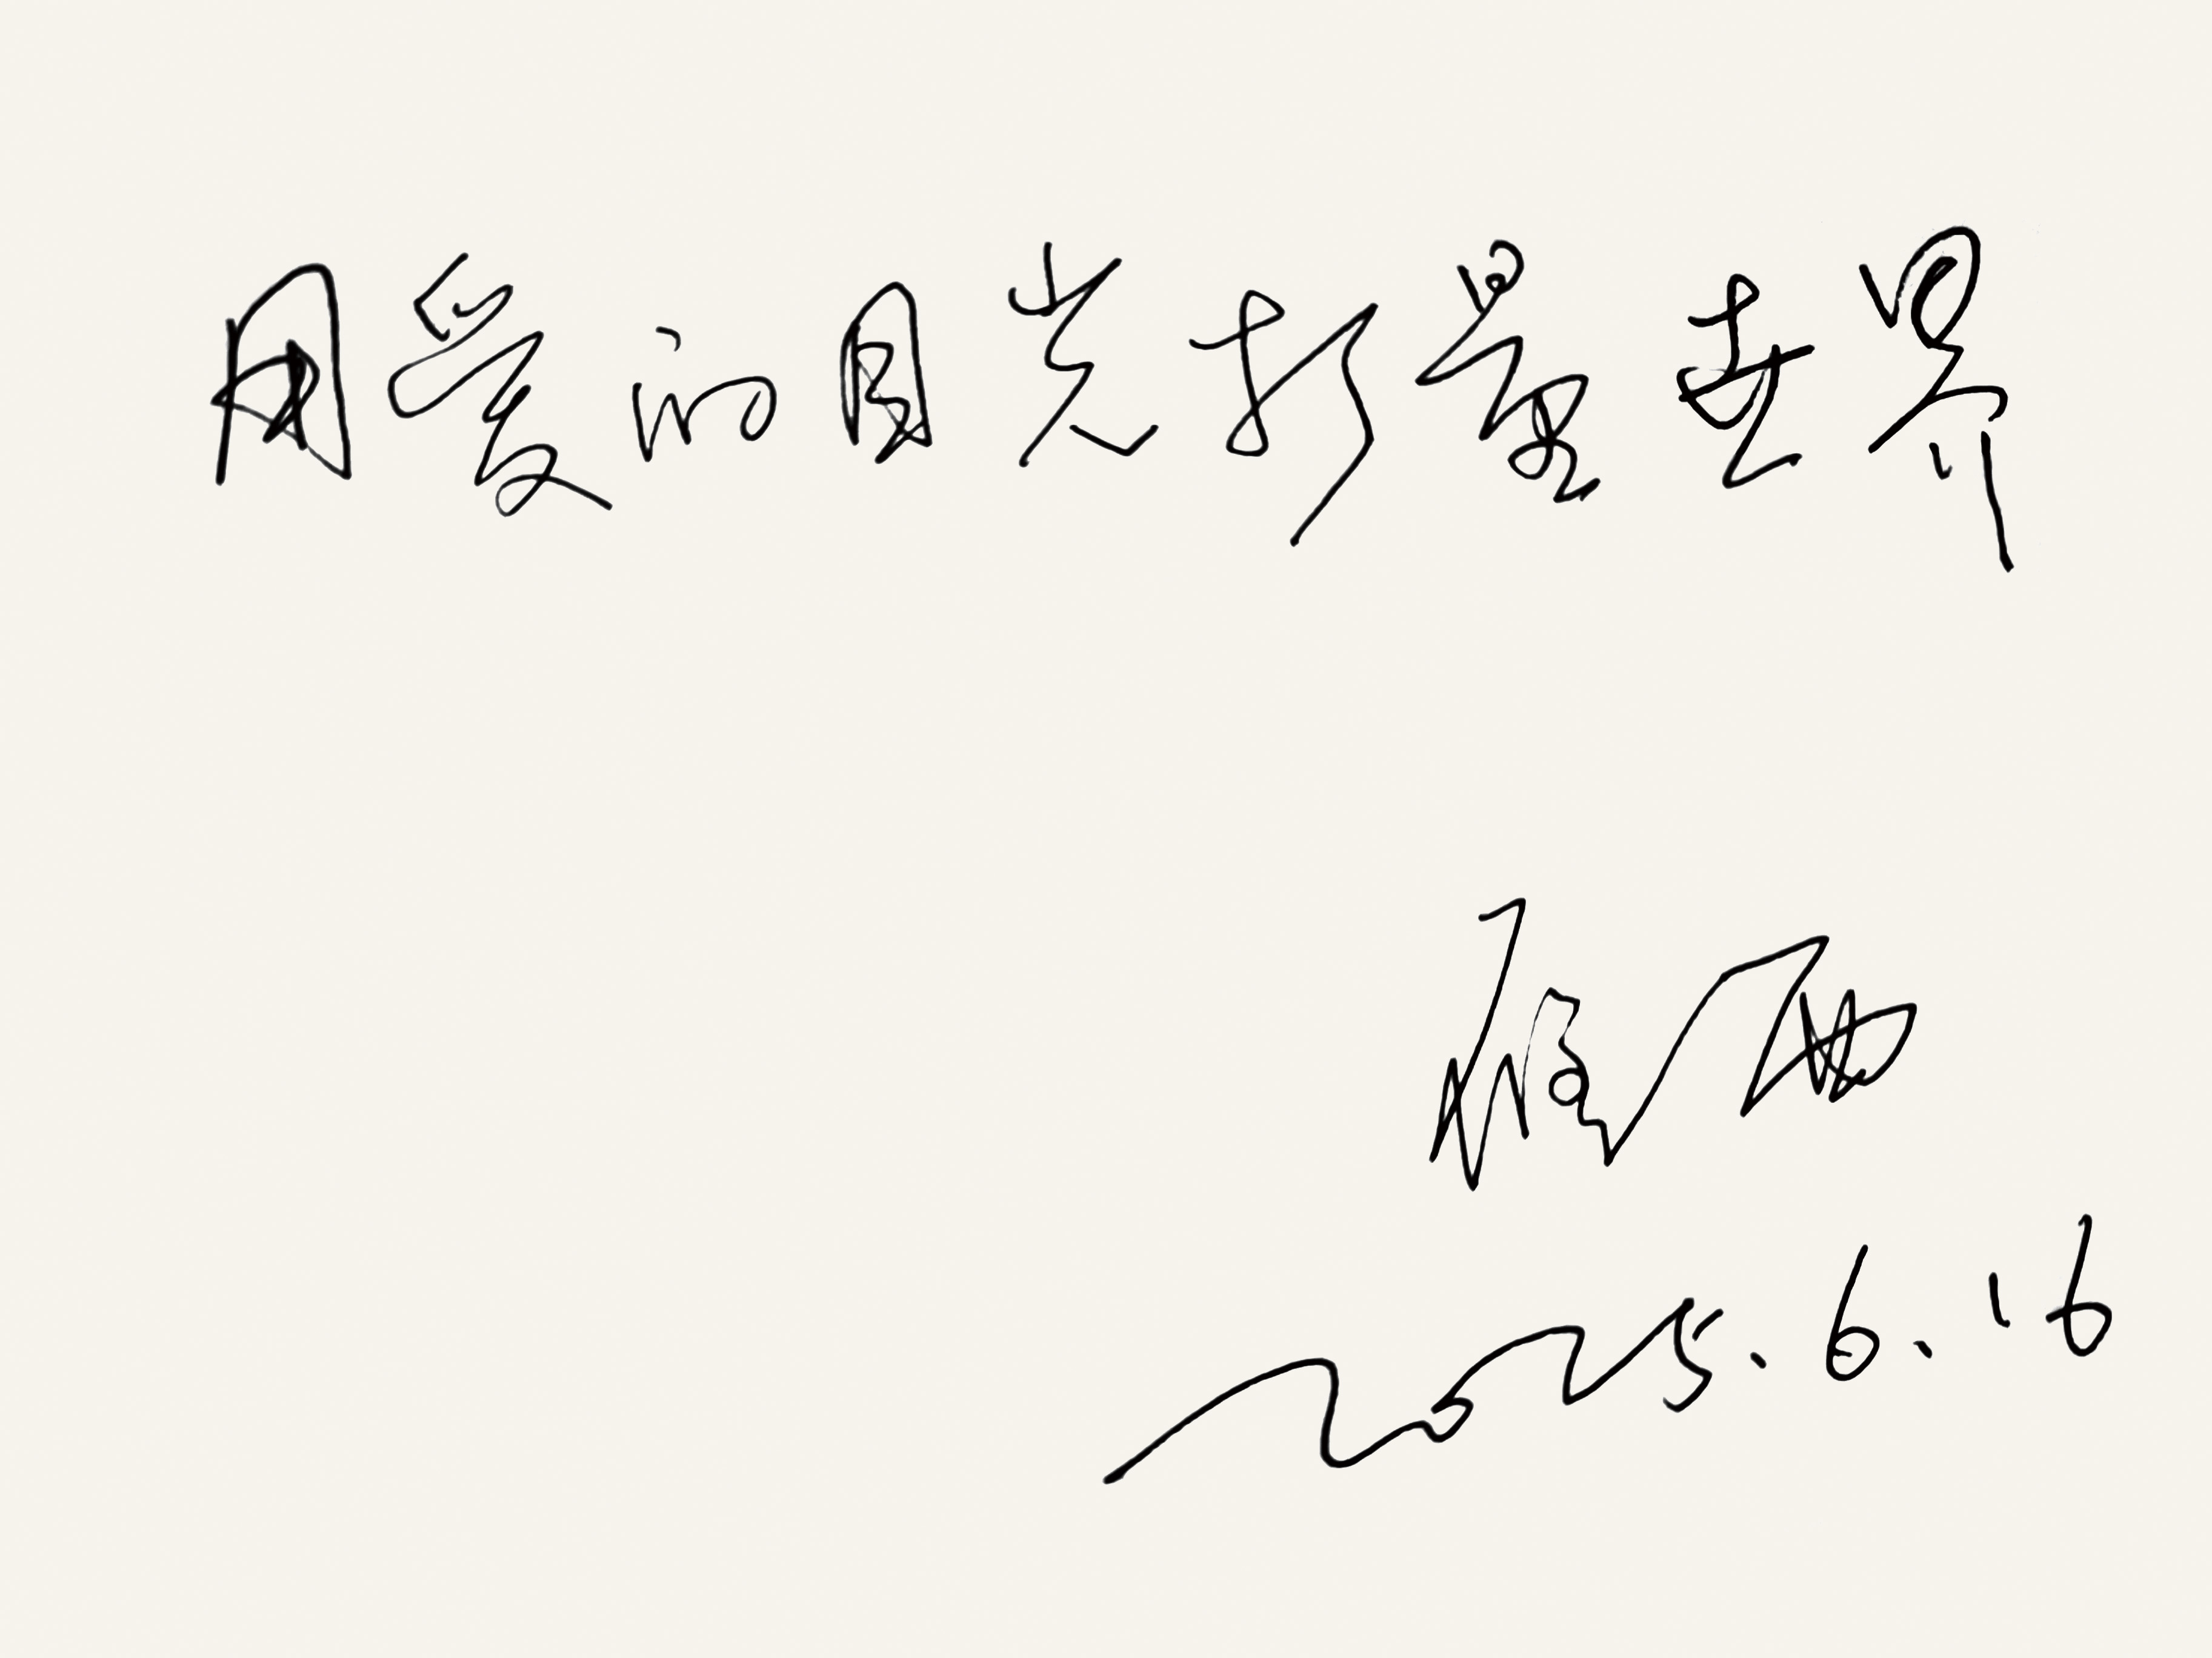 用爱的目光打量世界
2025.6.16